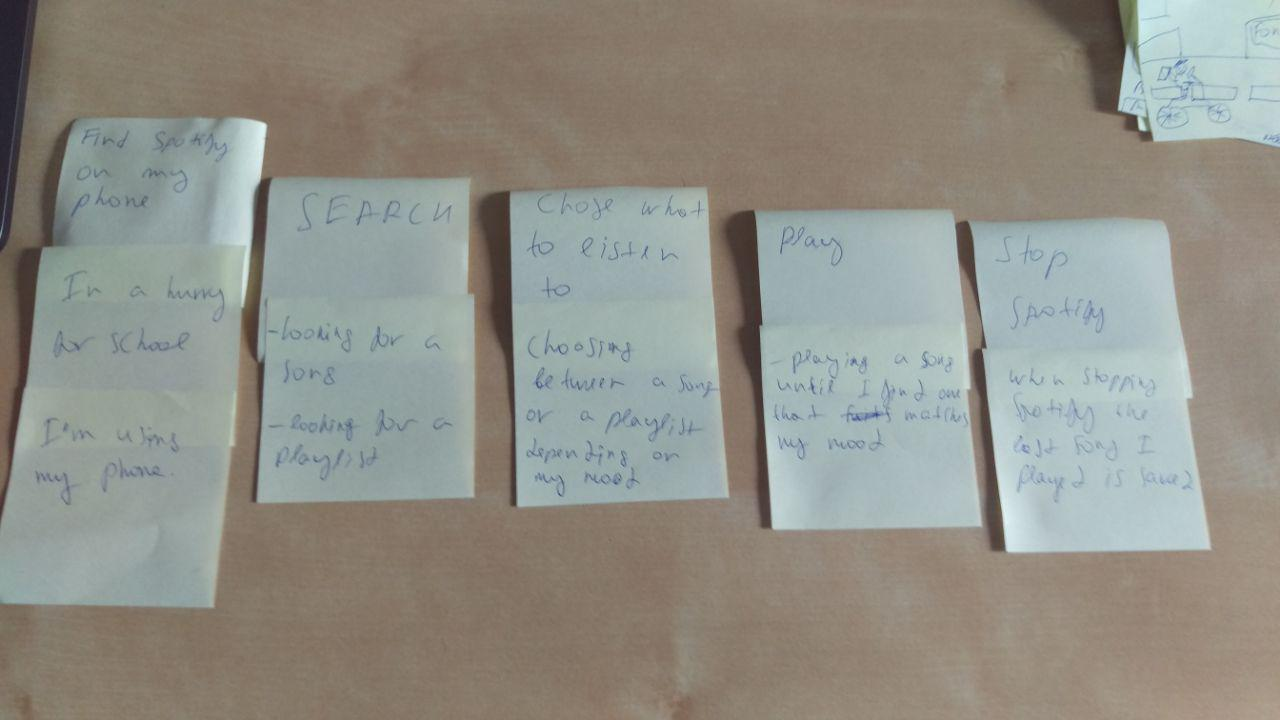 Find Spotify
on my
phone
In a hurry
for school
I'm using
my phone.
SEARCH
-looking for a
song
-looking for a
playlist
Chose what
to listen
to
Choosing
between a song
or a playlist
depending on
my mood
Play
- playing a song
until I find one
that matches
my mood
Stop
Spotify
when stopping
Spotify the
last song I
played is saved